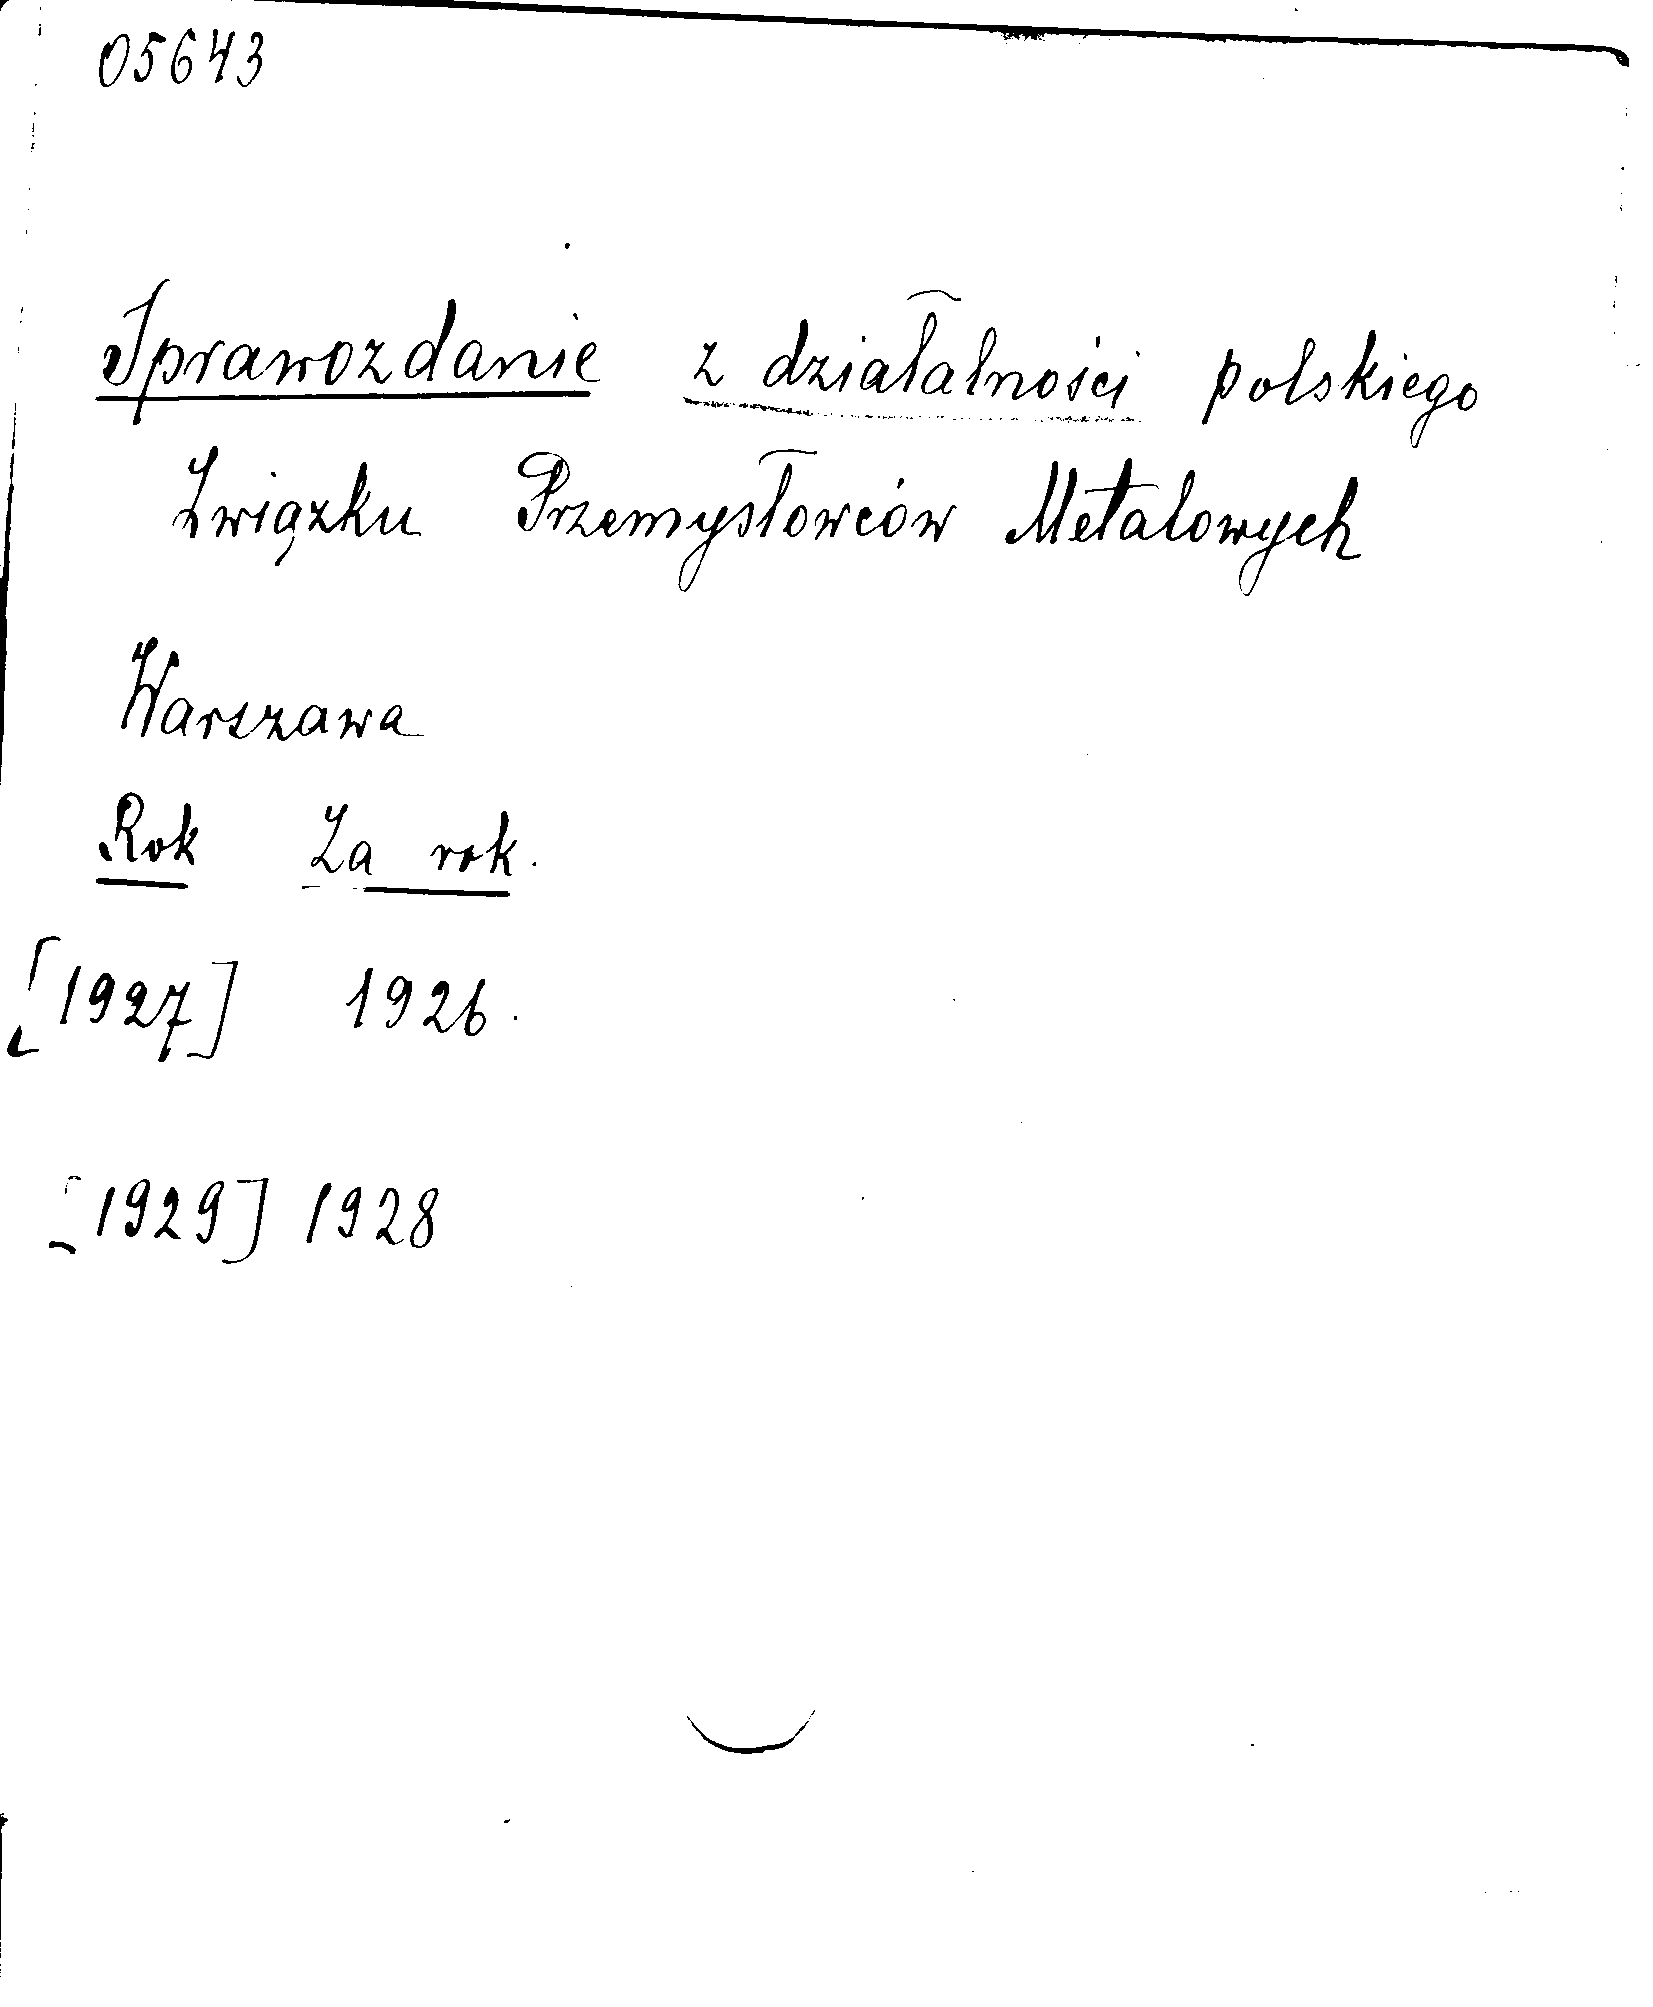 05643
Sprawozdanie z działalności polskiego
Związku Przemysłowców Metalowych
Warszawa
Rok Za rok.
[1927] 1926.
[1929] 1928